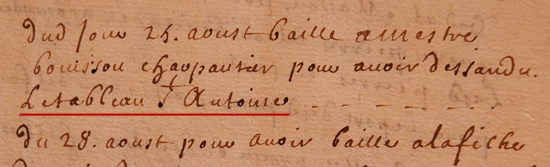 dud Jour 25. aoust baille amestre
bouissou chaopantier pour auoir dessandu.
Letableau St Antoine
du 28. aoust pour auoir baille alafiche